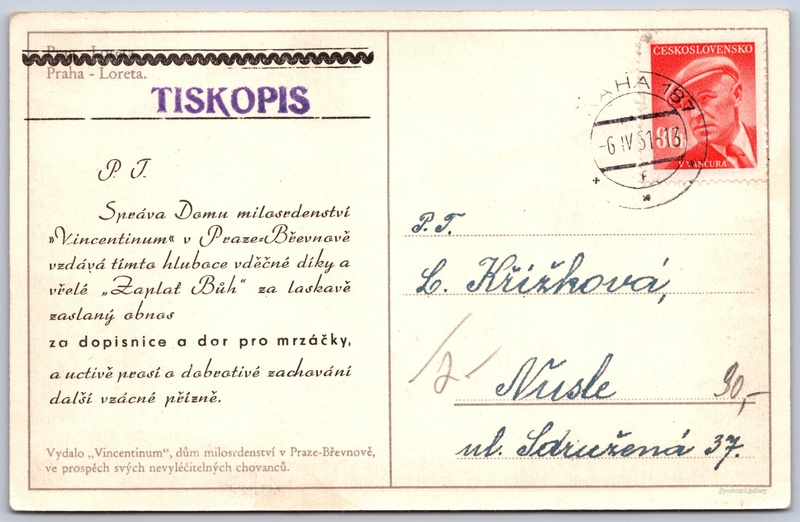 Praha - Loreta.
TISKOPIS
P. T.
Správa Domu milosrdenství
»Vincentinum« v Praze=Břevnově
vzdává tímto hluboce vděčné díky a
vřelé „Zaplať Bůh“ za laskavě
zaslaný obnos
za dopisnice a dar pro mrzáčky,
a uctivě prosí o dobrotivé zachování
další vzácné přízně.
Vydalo „Vincentinum“, dům milosrdenství v Praze-Břevnově,
ve prospěch svých nevyléčitelných chovanců.
ČESKOSLOVENSKO
V. VANČURA
PRAHA 187
-6 IV 51-13
F
P. T.
L. Křížková,
Nusle
30,-
ul. Sdružená 37.